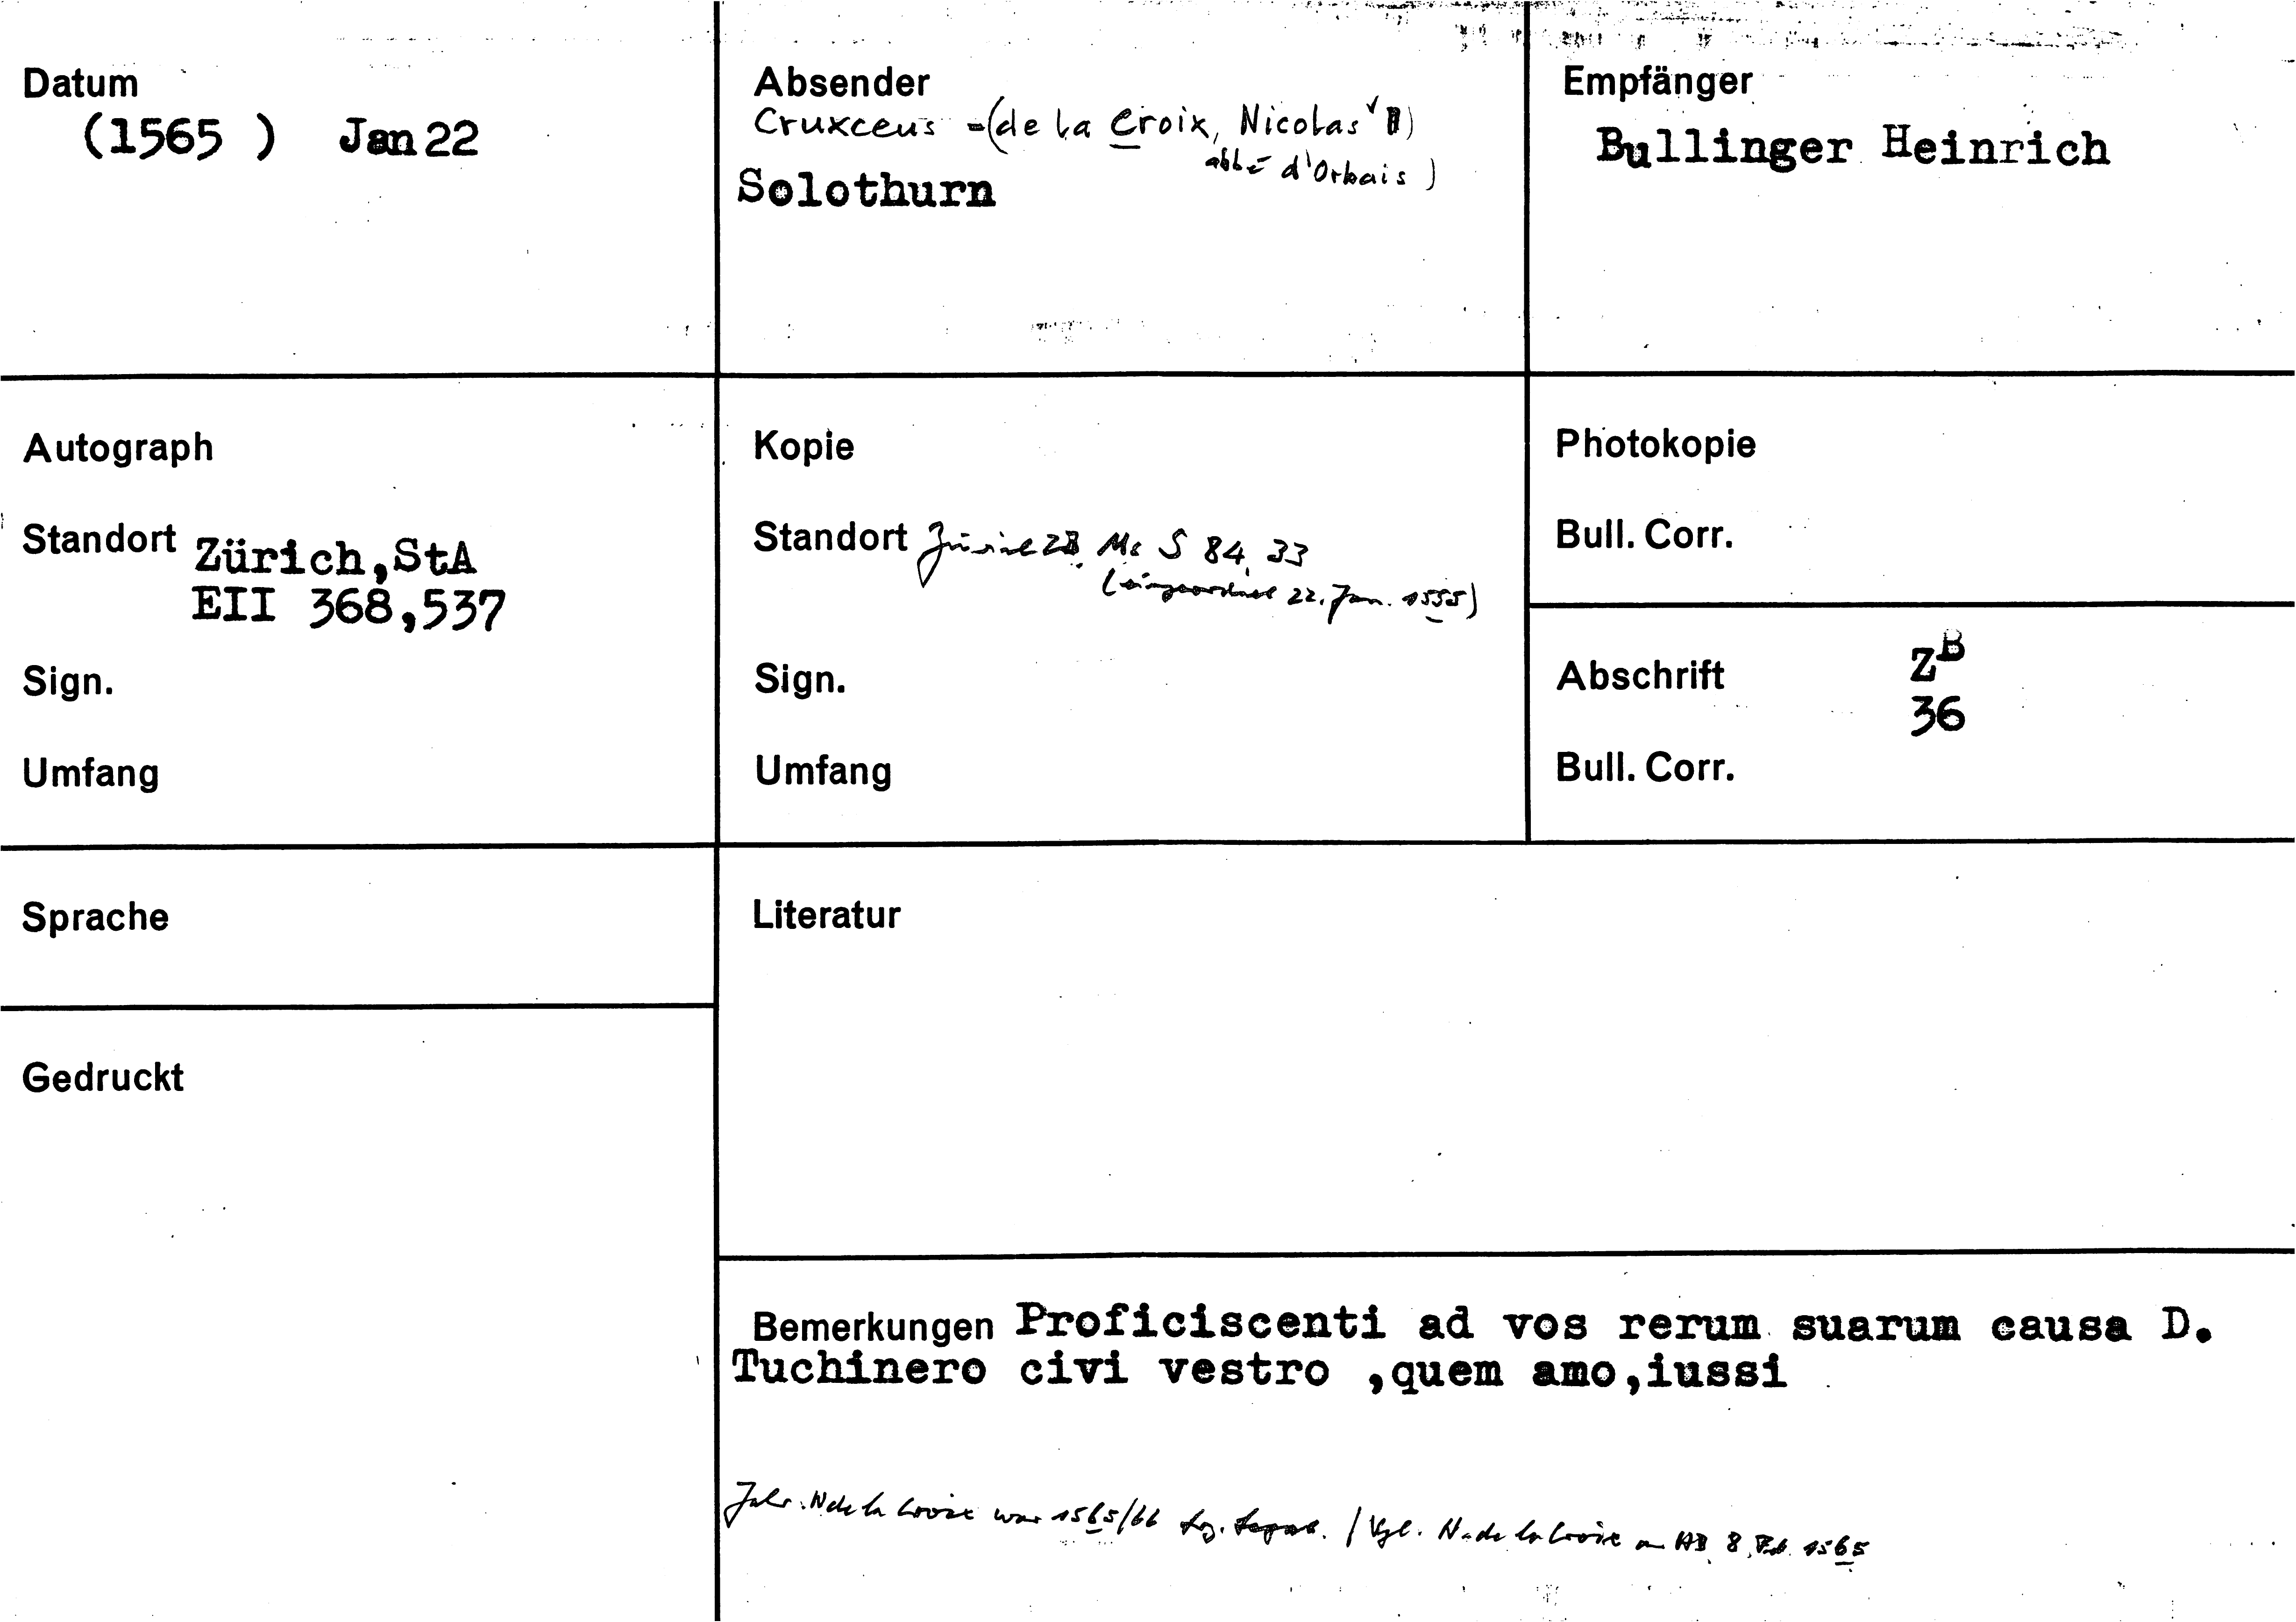 Datum
(1565 ) Jan 22
Absender
Cruxceus -(de la Croix, Nicolas
abbé d'Orbais )
Solothurn
Empfänger
Bullinger Heinrich
Autograph
Standort Zürich,StA
EII 368,537
Sign.
Umfang
Kopie
Standort Zürich ZB Ms S 84, 33
(eingeordnet 22. Jan. 1555)
Sign.
Umfang
Photokopie
Bull. Corr.
Abschrift ZB
36
Bull. Corr.
Sprache
Literatur
Gedruckt
Bemerkungen Proficiscenti ad vos rerum suarum causa D.
Tuchinero civi vestro ,quem amo,iussi
Jahr: N de la Croix war 1565/66 / Vgl. N. de la Croix an HB 8. Feb. 1565